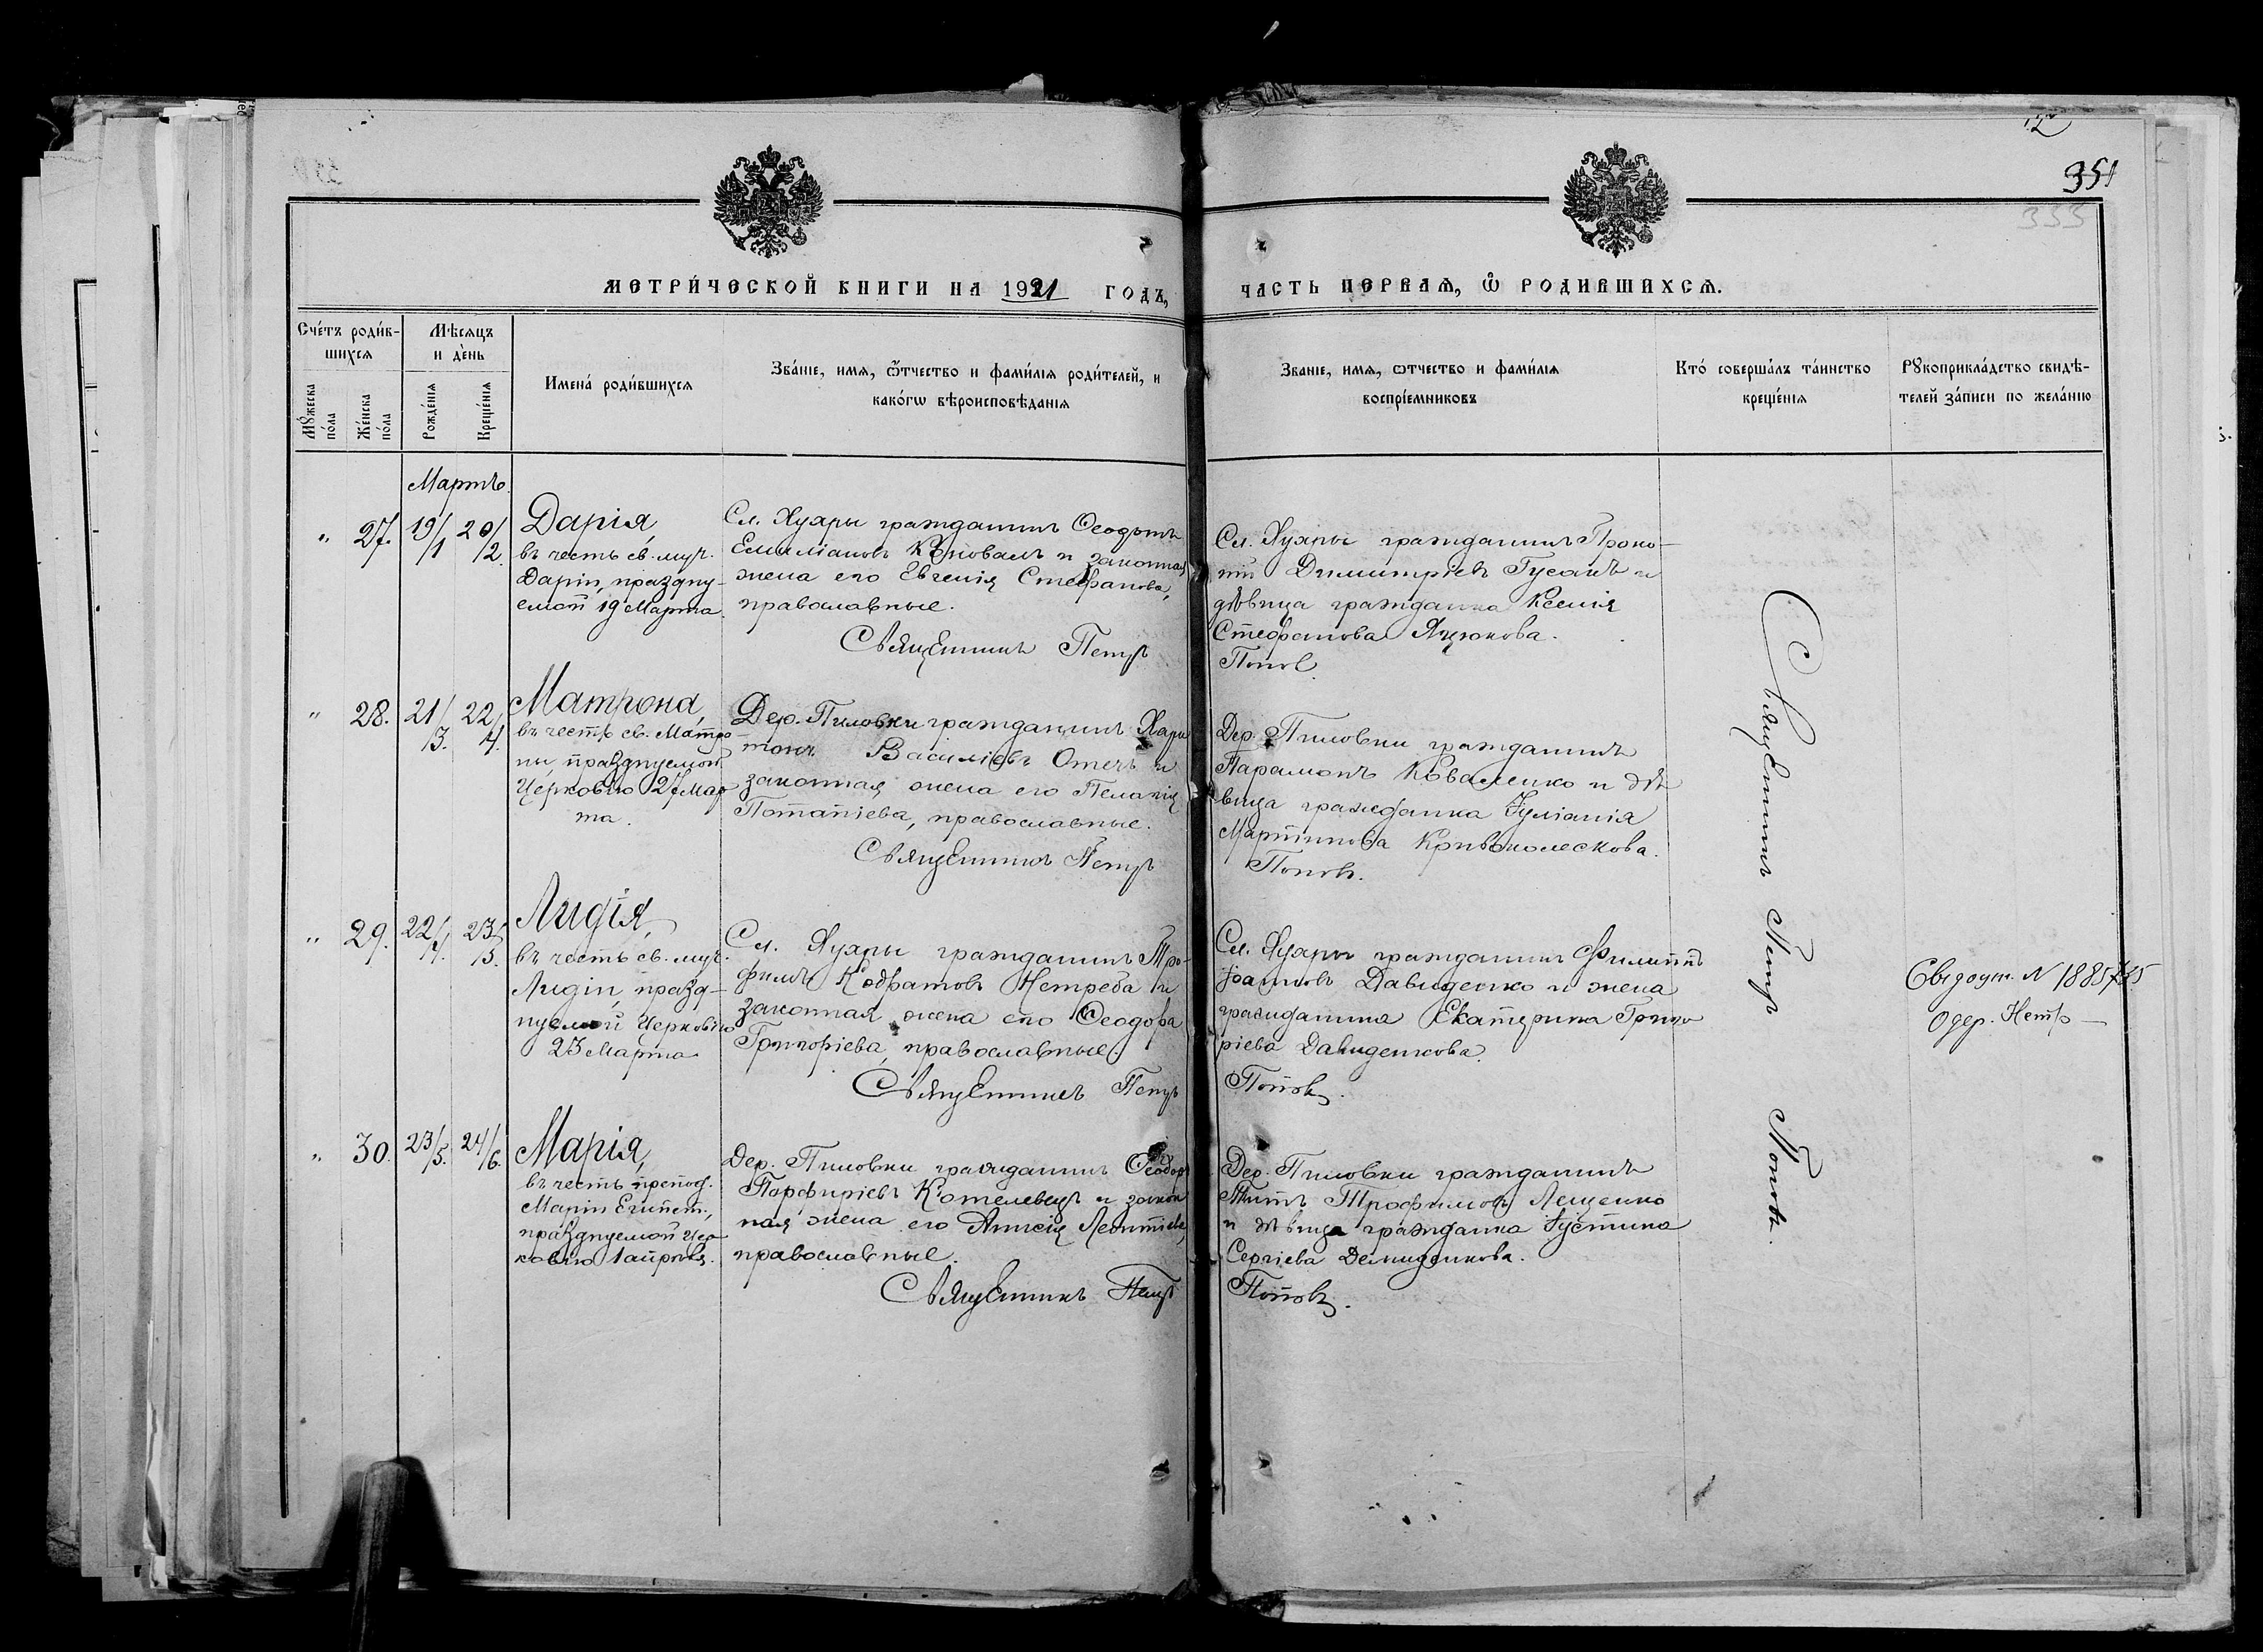 351
МЕТРИ́ЧЕСКОЙ КНИГИ НА 1921 ГОДЪ,
ЧАСТЬ ПЕРВАѦ, Ѡ РОДИВШИХСѦ.
Сче́тъ роди́в-
шихсѧ
Мꙋ́жеска по́ла
Же́нска по́ла
Мѣсѧцъ
и де́нь
Рожде́нїѧ
Креще́нїѧ
Имена́ роди́вшихсѧ
Зва́нїе, имѧ, ѻтчество и фами́лїѧ роди́телей, и
како́гѡ вѣроисповѣ́данїѧ
Званїе, имѧ, ѻтчество и фами́лїѧ
воспрїемниковъ
Кто́ соверша́лъ та́инство
креще́нїѧ
Рꙋкоприкла́дство свидѣ-
телей за́писи по жела́нїю
Мартъ.
„ 27. 19/1 20/2.
Дарія,
въ честь св. муч.
Даріи, праздну-
емой 19 Марта.
Сл. Хухры гражданинъ Ѳеодотъ
Емиліановъ Коновалъ и законная
жена его Евгенія Стефанова,
православные.
Священникъ Петръ
Сл. Хухры гражданинъ Проко-
пій Димитріевъ Гусакъ и
дѣвица гражданка Ксенія
Стефанова Яцюкова.
Попов.
„ 28. 21/3. 22/4.
Матрона,
въ честь св. Матро-
ны, празднуемой
Церковію 27 Мар
та.
Дер. Пиловки гражданинъ Хари
тонъ Василіевъ Отечъ и
законная жена его Пелагія
Потапіева, православные.
Священникъ Петръ
Дер. Пиловки гражданинъ
Парамонъ Коваленко и дѣ
вица гражданка Іуліанія
Мартинова Кривоколескова.
Поповъ.
„ 29. 22/4. 23/5.
Лидія,
въ честь св. муч.
Лидіи, празд-
нуемой Церковію
23 Марта
Сл. Хухры гражданинъ Тро-
фимъ Кодратовъ Нетреба и
законная жена его Ѳеодора
Григоріева, православные.
Священникъ Петръ
Сл. Хухры гражданинъ Филиппъ
Іоанновъ Давиденко и жена
гражданина Екатерина Григо
ріева Давиденкова.
Поповъ.
Свідоцт. N 1885745
Одер. Нетр
„ 30. 23/5. 24/6.
Марія,
въ честь препод.
Маріи Египет.,
празднуемой Цер
ковію 1 апрѣля.
Дер. Пиловки гражданинъ Ѳеодор
Порфиріевъ Котелевецъ и закон
ная жена его Анисія Леонтіева,
православные.
Священникъ Петръ
Дер. Пиловки гражданинъ
Титъ Трофимовъ Лещенко
и дѣвица гражданка Іустина
Сергіева Демиденкова.
Поповъ.
Священникъ Петръ Поповъ.